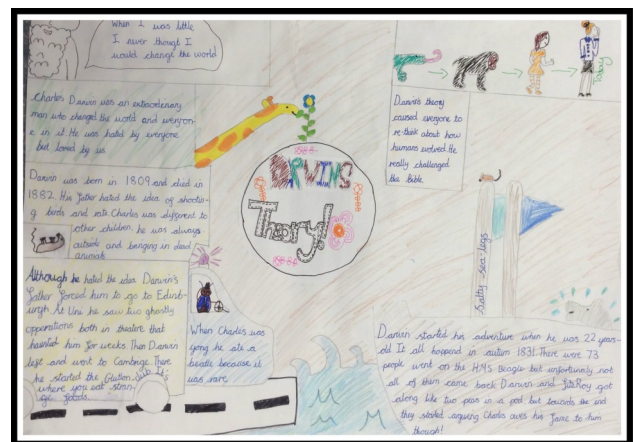 When I was little
I never though I
would change the world
Charles Darwin was an extraordenary
man who changed the world and everyon-
e in it. He was hated by everyone
but loved by us.
Darwin was born in 1809 and died in
1882. His father hated the idea of shootin-
g birds and rats. Charles was different to
other children, he was always
outside and bringing in dead
animals.
Although he hated the idea Darwin's
father forced him to go to Edinb-
urgh. At Uni he saw two ghastly
opperations both in theatre that
haunted him for weeks. Than Darwin
left and went to Cambrige. There
he started the Glution club. It's
where you eat stran-
ge foods.
When Charles was
yong he ate a
beatle because it
was rare
DARWINS
Theory!
Darwin's theory
caused everyone to
re-think about how
humans wolved. He
really challenged
the Bible.
Today
Salty-sea-legs
Darwin started his adventure when he was 22 years-
old. It all happend in autim 1831. There were 73
people went on the HMS Beagle but unfortunatly not
all of them came back. Darwin and fitzRoy got
along like two peas in a pod but towards the end
they started argueing. Charles owes his fame to him
though!